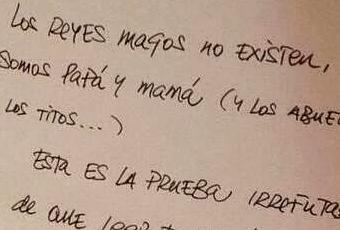 Los REYES magos no EXISTEN,
Somos PaPá y mamá (y Los ABUE
LOS TITOS...)
ESTA ES LA PRUEBA IRREFUTA
de QUE